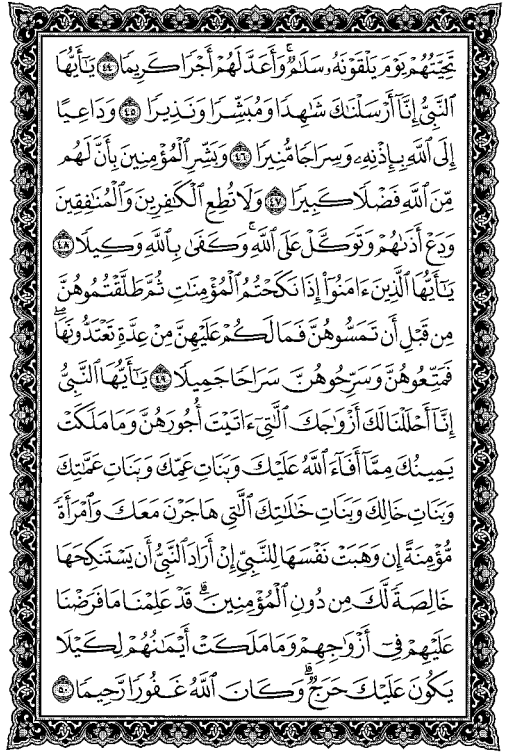 تَحِيَّتُهُمْ يَوْمَ يَلْقَوْنَهُۥ سَلَٰمٌۭ ۚ وَأَعَدَّ لَهُمْ أَجْرًۭا كَرِيمًۭا ٤٤ يَٰٓأَيُّهَا
ٱلنَّبِىُّ إِنَّآ أَرْسَلْنَٰكَ شَٰهِدًۭا وَمُبَشِّرًۭا وَنَذِيرًۭا ٤٥ وَدَاعِيًا
إِلَى ٱللَّهِ بِإِذْنِهِۦ وَسِرَاجًۭا مُّنِيرًۭا ٤٦ وَبَشِّرِ ٱلْمُؤْمِنِينَ بِأَنَّ لَهُم
مِّنَ ٱللَّهِ فَضْلًۭا كَبِيرًۭا ٤٧ وَلَا تُطِعِ ٱلْكَٰفِرِينَ وَٱلْمُنَٰفِقِينَ
وَدَعْ أَذَىٰهُمْ وَتَوَكَّلْ عَلَى ٱللَّهِ ۚ وَكَفَىٰ بِٱللَّهِ وَكِيلًۭا ٤٨
يَٰٓأَيُّهَا ٱلَّذِينَ ءَامَنُوٓا۟ إِذَا نَكَحْتُمُ ٱلْمُؤْمِنَٰتِ ثُمَّ طَلَّقْتُمُوهُنَّ
مِن قَبْلِ أَن تَمَسُّوهُنَّ فَمَا لَكُمْ عَلَيْهِنَّ مِنْ عِدَّةٍۢ تَعْتَدُّونَهَا ۖ
فَمَتِّعُوهُنَّ وَسَرِّحُوهُنَّ سَرَاحًۭا جَمِيلًۭا ٤٩ يَٰٓأَيُّهَا ٱلنَّبِىُّ
إِنَّآ أَحْلَلْنَا لَكَ أَزْوَٰجَكَ ٱلَّٰتِىٓ ءَاتَيْتَ أُجُورَهُنَّ وَمَا مَلَكَتْ
يَمِينُكَ مِمَّآ أَفَآءَ ٱللَّهُ عَلَيْكَ وَبَنَاتِ عَمِّكَ وَبَنَاتِ عَمَّٰتِكَ
وَبَنَاتِ خَالِكَ وَبَنَاتِ خَٰلَٰتِكَ ٱلَّٰتِى هَاجَرْنَ مَعَكَ وَٱمْرَأَةًۭ
مُّؤْمِنَةً إِن وَهَبَتْ نَفْسَهَا لِلنَّبِىِّ إِنْ أَرَادَ ٱلنَّبِىُّ أَن يَسْتَنكِحَهَا
خَالِصَةًۭ لَّكَ مِن دُونِ ٱلْمُؤْمِنِينَ ۗ قَدْ عَلِمْنَا مَا فَرَضْنَا
عَلَيْهِمْ فِىٓ أَزْوَٰجِهِمْ وَمَا مَلَكَتْ أَيْمَٰنُهُمْ لِكَيْلَا
يَكُونَ عَلَيْكَ حَرَجٌۭ ۗ وَكَانَ ٱللَّهُ غَفُورًۭا رَّحِيمًۭا ٥٠